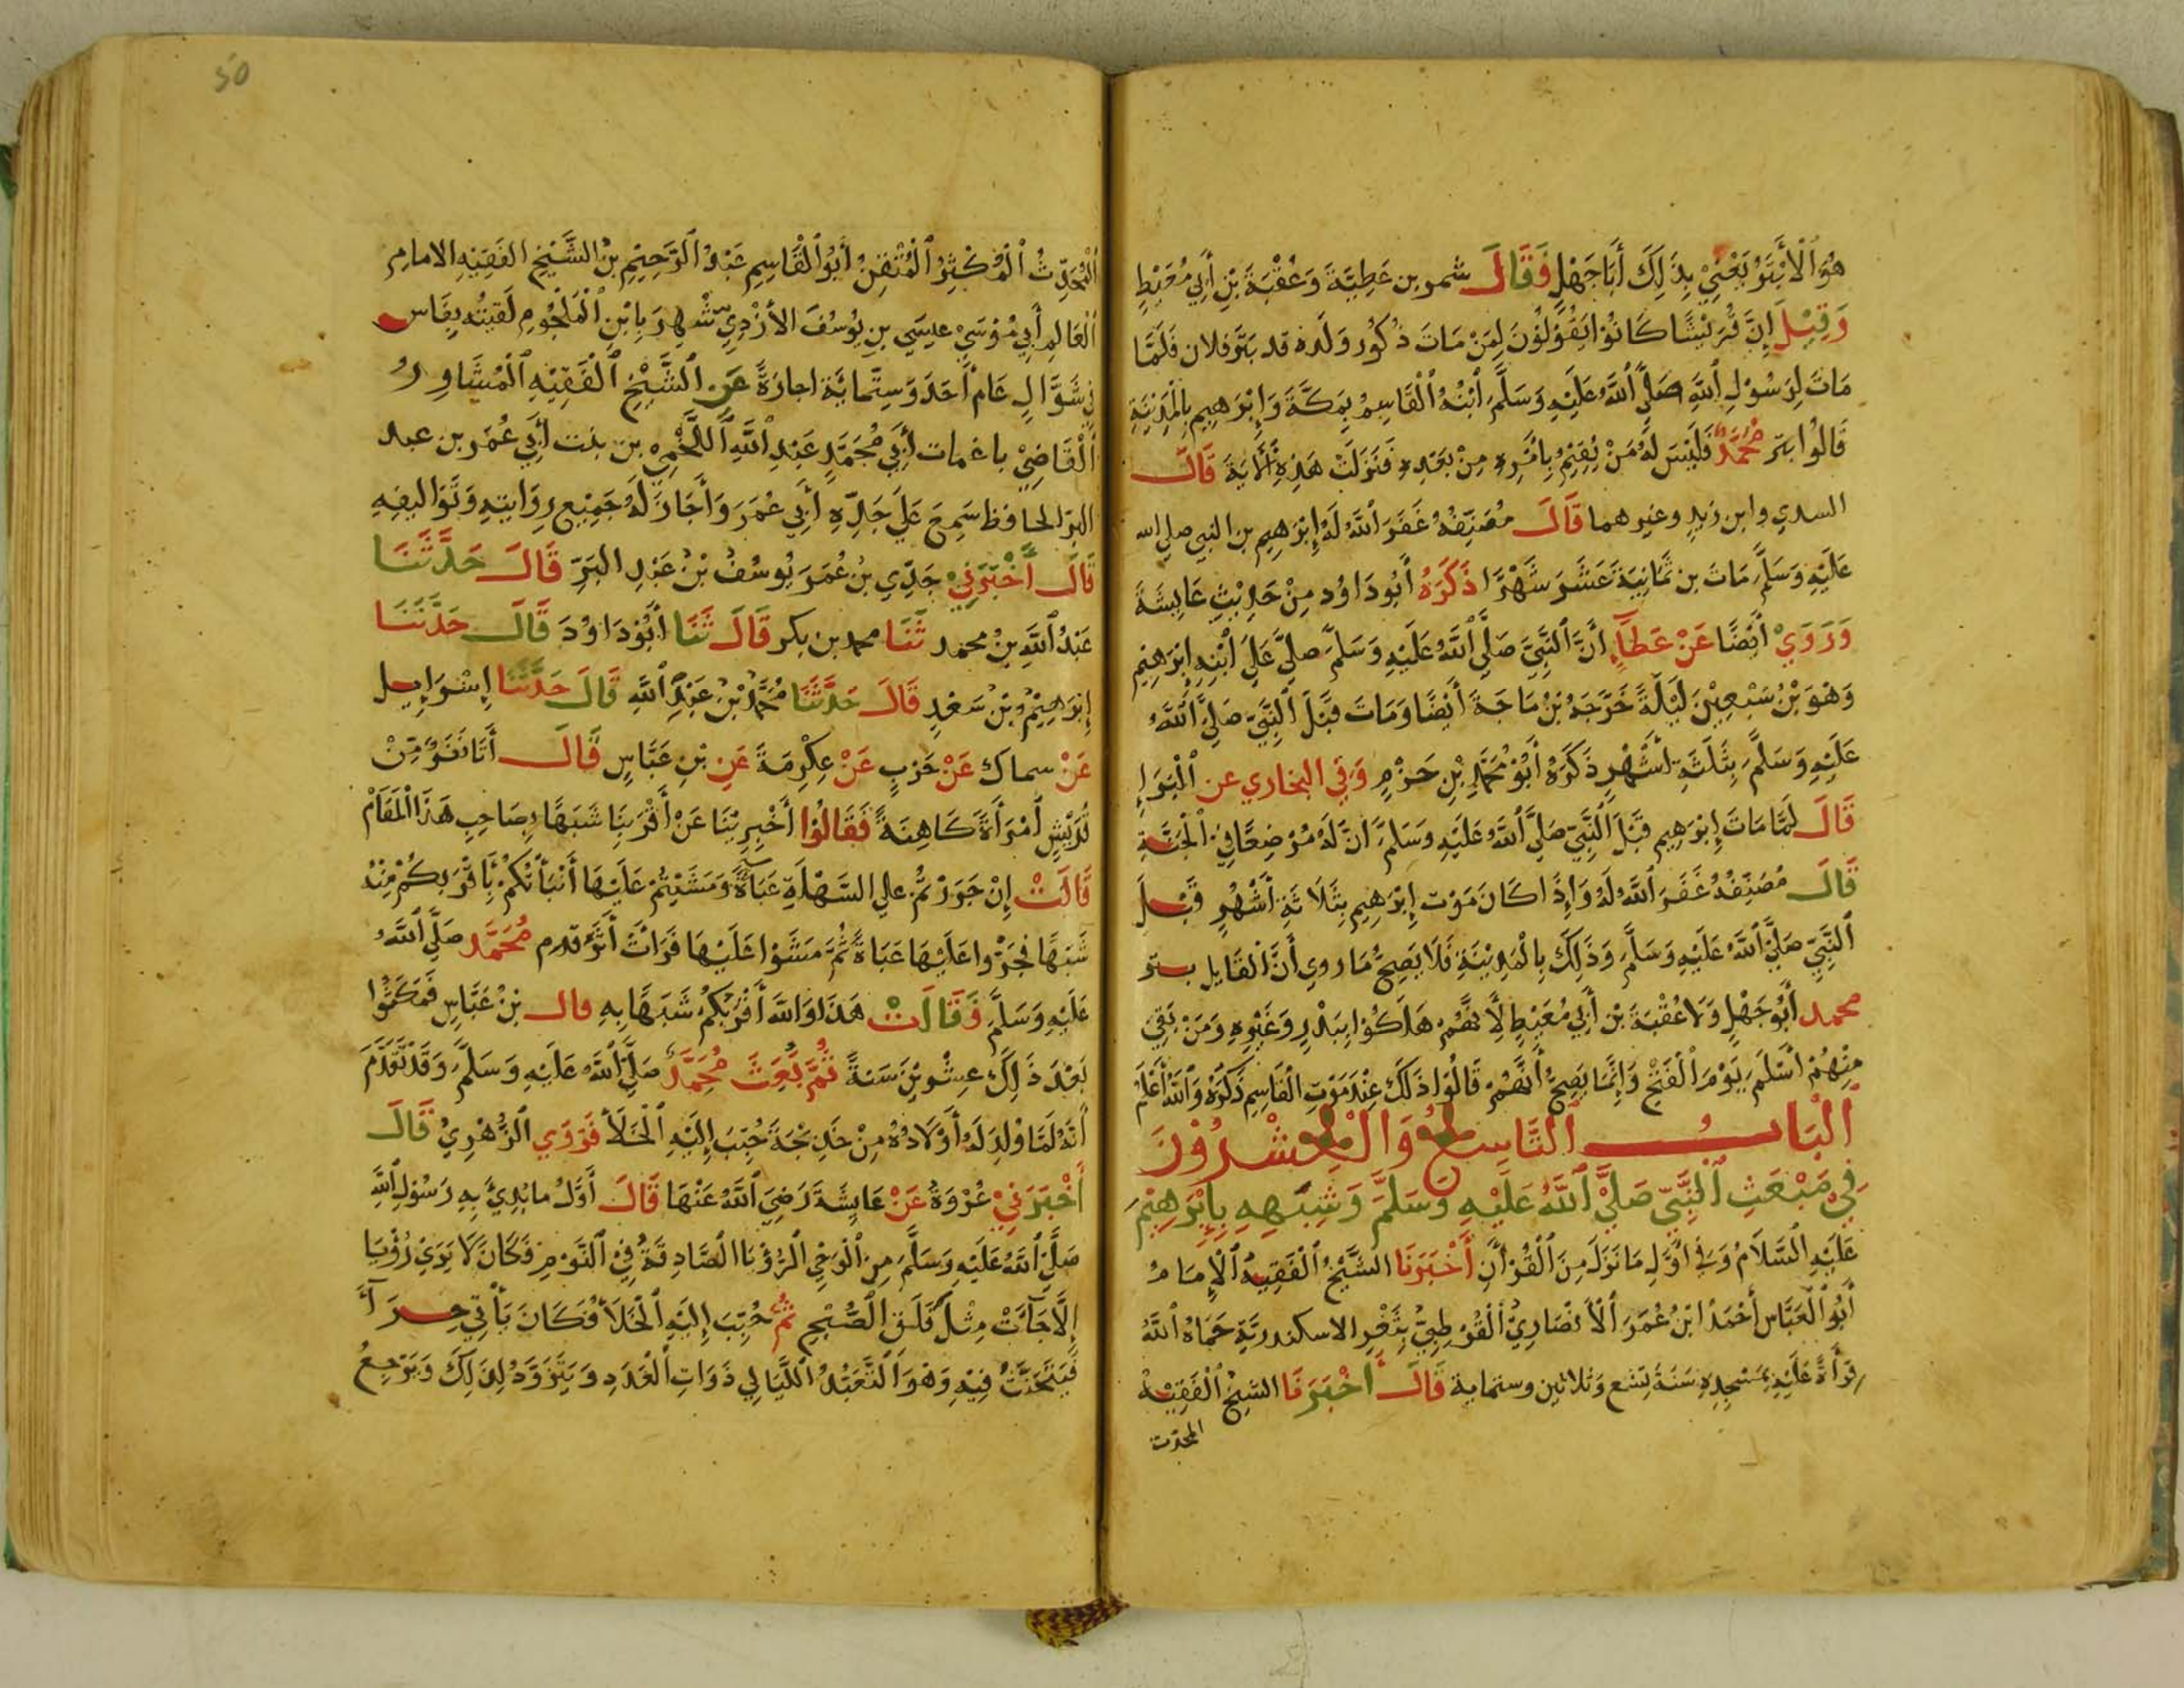 هُوَ الْأَبْتَرُ يَعْنِيْ بِذَلِكَ أَبَا جَهْلٍ فَقَالَ شمر بن عَطِيَّةَ وَعُقْبَةَ بْنِ أَبِي مُعَيْطٍ
وَقِيْلَ إِنَّ قُرَيْشًا كَانُوْا يَقُوْلُوْنَ لِمَنْ مَاتَ ذُكُور وَلَده قد بَتَرَ فلان فَلَمَّا
مَاتَ لِرَسُوْلِ اللَّهِ صَلَّى اللَّهُ عَلَيْهِ وَسَلَّمَ ابْنُهُ الْقَاسِمُ بِمَكَّةَ وَإِبْرَهِيم بِالْمَدِيْنَةِ
قَالُوْا بَتَرَ مُحَمَّدٌ فَلَيْسَ لَهُ مَنْ يُقِيْمُ بِأَمْرِهِ مِنْ بَعْدِهِ فَنَزَلَتْ هَذِهِ الْآيَةَ قَالَ
السدي وابن زيدٍ وغيرهما قَالَ مُصَنِّفُهُ غَفَرَ اللَّهُ لَهُ إِبْرَهِيم بن النبي صلى الله
عَلَيْهِ وَسَلَّمَ مَاتَ بن ثَمَانِيَةَ عَشَرَ شَهْرًا ذَكَرَهُ أَبُو دَاوُد مِنْ حَدِيْثِ عَايِشَةَ
وَرَوَيْ أَيْضًا عَنْ عَطَآءٍ أَنَّ النَّبِيَّ صَلَّى اللَّهُ عَلَيْهِ وَسَلَّمَ صلى عَلَى ابْنِهِ إِبْرَهِيْم
وَهْوَ بْنُ سَبْعِيْنَ لَيْلَةً خَرَّجَهُ بْنُ مَاجَةَ أَيْضًا وَمَاتَ قَبْلَ النَّبِيِّ صَلَّى اللَّهُ
عَلَيْهِ وَسَلَّمَ بِثَلَثَةِ أَشْهُرٍ ذَكَرَهُ أَبُو مُحَمَّدِ بْنِ حَزْمٍ وَفِي البخاري عن الْبَرَاءِ
قَالَ لَمَّا مَاتَ إِبْرَهِيم قَبْلَ النَّبِيِّ صَلَّى اللَّهُ عَلَيْهِ وَسَلَّمَ انَّ لَهُ مُرْضِعًا فِي الْجَنَّةِ
قَالَ مُصَنِّفُهُ غَفَرَ اللَّهُ لَهُ وَإِذَا كَانَ مَوْت إِبْرَهِيم بِثَلَاثَةِ أَشْهُرٍ قَبْلَ
النَّبِيِّ صَلَّى اللَّهُ عَلَيْهِ وَسَلَّمَ وَذَلِكَ بِالْمَدِيْنَةِ فَلَا يَصِحُّ مَا روي أَنَّ الْقَايِل بتر
محمد أَبُو جَهْلٍ وَلَا عُقْبَةَ بْن أَبِي مُعَيْطٍ لِأَنَّهُمْ هَلَكُوْا بِبَدْرٍ وَغَيْرِهِ وَمَنْ بَقِيَ
مِنْهُمْ أَسْلَمَ يَوْمَ الْفَتْحِ وَإِنَّمَا يَصِحُّ أَنَّهُمْ قَالُوْا ذَلِكَ عِنْدَ مَوْتِ الْقَاسِمِ ذَكَرَهُ وَاللَّهُ أَعْلَمُ
الْبَابُ التَّاسِعُ وَالْعِشْرُوْنَ
فِيْ مَبْعَثِ النَّبِيِّ صَلَّى اللَّهُ عَلَيْهِ وَسَلَّمَ وَشِبْهِهِ بِإِبْرَهِيْمَ
عَلَيْهِ السَّلَامُ وَفِي أَوَّلِ مَا نَزَلَ مِنَ الْقُرْآنِ أَخْبَرَنَا الشَّيْخُ الْفَقِيهُ الْإِمَامُ
أَبُو الْعَبَّاس أَحْمَدُ ابْنُ عُمَرَ الْأَنْصَارِيُّ الْقُرْطِبِيُّ بِثَغْرِ الاسكندرية حَمَاهُ اللَّهُ
قِرَأَةً عَلَيْهِ بِمَسْجِدِهِ سَنَةَ تِسْع وَثلاثين وستماية قَالَ أَخْبَرَنَا الشَّيْخُ الْفَقِيْهُ
المحدث
50
الْمُحَدِّثُ الْمُكْثِرُ الْمُتْقِنُ أَبُو الْقَاسِمِ عَبْدُ الرَّحِيْمِ بْنُ الشَّيْخِ الفَقِيْهِ الامامِ
الْعَالِمِ أَبِي مُوْسَيْ عِيسَي بن يُوسُفَ الأَزْدِيِّ شُهِرَ بِابْنِ الْمَلْجُومِ لَقِيتُه بِفَاسٍ
فِي شَوَّالِ عَامَ أَحَدَ وَسِتَّمائَة اجازَةً عَنِ الشَّيْخِ الْفَقِيْهِ الْمُشَاوِرُ
الْقَاضِيْ باغمات أَبِي مُحَمَّدٍ عَبْدِ اللَّهِ اللَّخْمِيْ بن بنت أَبِي عُمَر بن عبد
البر الحافظ سَمِعَ عَلَى جَدِّهِ أَبِي عُمَرَ وَأَجَازَ لَهُ جَمِيْعَ رِوَايتِهِ وَتَوَاليفِهِ
قَالَ أَخْبَرَنِيْ جَدِّي بنُ عُمَرَ يُوسُفُ بْنُ عَبْدِ البَرِّ قَالَ حَدَّثَنَا
عَبْدُ اللَّهِ بنُ محمد ثَنَا محمد بن بكر قَالَ ثَنَا أَبُوْدَاوُدَ قَالَ حَدَّثَنَا
إِبْرَهِيْمُ بْنُ سَعْدٍ قَالَ حَدَّثَنَا مُحَمَّدُ بْنُ عَبْدِ اللَّهِ قَالَ حَدَّثَنَا إِسْرَايِيل
عَنْ سماك عَنْ حَرْبٍ عَنْ عِكْرِمَةَ عَنِ بْنِ عَبَّاسٍ قَالَ أَتَا نَفَرٌ مِنْ
قُرَيْشٍ امْرَأَةً كَاهِنَةً فَقَالُوْا أَخْبِرِيْنَا عَنْ أَقْرَبِنَا شَبَهًا بِصَاحِبِ هَذَا الْمَقَامْ
قَالَتْ إِنْ جَرَرْتُمْ على السَّهْلَةِ عَبَاةً وَمَشَيْتُمْ عَلَيْهَا أَنْبَأْتُكُمْ بِأَقْرَبِكُمْ مِنْهُ
شَبَهًا فَجَرُّوا عَلَيْهَا عَبَاةً ثُمَّ مَشَوْا عَلَيْهَا فَرَأَتْ أَثَرَ قدم مُحَمَّد صَلَّى اللَّهُ
عَلَيْهِ وَسَلَّمَ فَقَالَتْ هَذَا وَاللَّهِ أَقْرَبُكُمْ شَبَهًا بِهِ قال بْنُ عَبَّاسٍ فَمَكَثُوْا
بَعْدَ ذَلِكَ عِشْرِيْنَ سَنَةً ثُمَّ بُعِثَ مُحَمَّدٌ صَلَّى اللَّهُ عَلَيْهِ وَسَلَّمَ وَقَدْ تَقَدَّمَ
أَنَّهُ لَمَّا وُلِدَ لَهُ أَوْلَادُهُ مِنْ خَدِيْجَةَ حُبِّبَ إِلَيْهِ الْخَلَأُ فَرَوَي الزُّهْرِيْ قَالَ
أَخْبَرَنِيْ عُرْوَةُ عَنْ عَايِشَةَ رَضِيَ اللَّهُ عَنْهَا قَالَ أَوَّلُ مابُدِيَ بِهِ رَسُوْلُ اللَّهِ
صَلَّى اللَّهُ عَلَيْهِ وَسَلَّمَ مِنَ الْوَحْيِ الرُّؤْيَا الصَّادِقَةُ فِي النَّوْمِ فَكَانَ لَا يَرَيْ رُؤْيَا
إِلَّا جَآءَتْ مِثْلَ فَلَقِ الصُّبْحِ ثُمَّ حُبِّبَ إِلَيْهِ الْخَلَأُ فَكَانَ يَأْتِي حِرَآءَ
فَيَتَحَنَّثُ فِيْهِ وَهْوَ التَّعَبُّدُ اللَّيَالِي ذَوَاتِ الْعَدَدِ وَيَتَزَوَّدُ لِذَلِكَ وَيَرْجِعُ